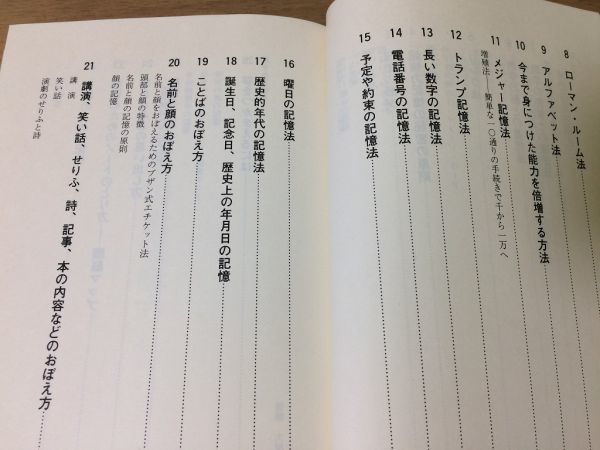 8 ローマン・ルーム法
9 アルファベット法
10 今まで身につけた能力を倍増する方法
11 メジャー記憶法
増殖法——簡単な一〇通りの手続きで千から一万へ
12 トランプ記憶法
13 長い数字の記憶法
14 電話番号の記憶法
15 予定や約束の記憶法
16 曜日の記憶法
17 歴史的年代の記憶法
18 誕生日、記念日、歴史上の年月日の記憶
19 ことばのおぼえ方
20 名前と顔のおぼえ方
名前と顔をおぼえるためのブザン式エチケット法
頭部と顔の特徴
名前と顔の記憶の原則
顔の記憶
21 講演、笑い話、せりふ、詩、記事、本の内容などのおぼえ方
講演
笑い話
演劇のせりふと詩